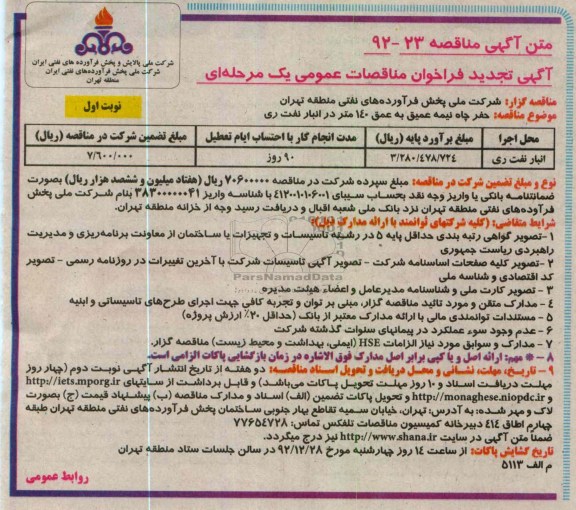 شرکت ملی پالایش و پخش فرآورده های نفتی ایران
شرکت ملی پخش فرآورده‌های نفتی ایران
منطقه تهران
متن آگهی مناقصه ۲۳ -۹۲
آگهی تجدید فراخوان مناقصات عمومی یک مرحله‌ای
نوبت اول
مناقصه گزار: شرکت ملی پخش فرآورده‌های نفتی منطقه تهران
موضوع مناقصه: حفر چاه نیمه عمیق به عمق ۱۴۰ متر در انبار نفت ری
محل اجرا مبلغ برآورد پایه (ریال) مدت انجام کار با احتساب ایام تعطیل مبلغ تضمین شرکت در مناقصه (ریال)
انبار نفت ری ۳/۲۸۰/۴۷۸/۷۲۴ ۹۰ روز ۷/۶۰۰/۰۰۰
نوع و مبلغ تضمین شرکت در مناقصه: مبلغ سپرده شرکت در مناقصه ۷۰۶۰۰۰۰۰ ریال (هفتاد میلیون و ششصد هزار ریال) بصورت
ضمانتنامه بانکی یا واریز وجه نقد بحساب سیبای ۴۱۲۰۰۱۰۱۰۶۰۰۱ با شناسه واریز ۳۸۳۰۰۰۰۰۰۴۱ بنام شرکت ملی پخش
فرآورده‌های نفتی منطقه تهران نزد بانک ملی شعبه اقبال و دریافت رسید وجه از خزانه منطقه تهران.
شرایط متقاضی: (کلیه شرکتهای توانمند با ارائه مدارک ذیل):
۱-تصویر گواهی رتبه بندی حداقل پایه ۵ در رشته تاسیسات و تجهیزات یا ساختمان از معاونت برنامه‌ریزی و مدیریت
راهبردی ریاست جمهوری
۲-تصویر کلیه صفحات اساسنامه شرکت - تصویر آگهی تاسیسات شرکت با آخرین تغییرات در روزنامه رسمی - تصویر
کد اقتصادی و شناسه ملی
۳- تصویر کارت ملی و شناسنامه مدیرعامل و اعضاء هیئت مدیره
۴- مدارک متقن و مورد تائید مناقصه گزار، مبنی بر توان و تجربه کافی جهت اجرای طرح‌های تاسیساتی و ابنیه
۵- مستندات توانمندی مالی با ارائه مدارک معتبر از بانک (حداقل ۲۰٪ ارزش پروژه)
۶- عدم وجود سوء عملکرد در پیمانهای سنوات گذشته شرکت
۷- مدارک و سوابق مورد نیاز الزامات HSE (ایمنی، بهداشت و محیط زیست) مناقصه گزار.
۸ -* مهم: ارائه اصل و یا کپی برابر اصل مدارک فوق الاشاره در زمان بازگشایی پاکات الزامی است.
۹- تاریخ، مهلت، نشانی و محل دریافت و تحویل اسناد مناقصه: دو هفته از تاریخ انتشار آگهی نوبت دوم (چهار روز
مهلت دریافت اسناد و ۱۰ روز مهلت تحویل پاکات می‌باشد.) و قابل برداشت از سایتهای http://iets.mporg.ir
و http://monaghese.niopdc.ir و تحویل پاکات تضمین (الف) اسناد و مدارک مناقصه (ب) پیشنهاد قیمت (ج) بصورت
لاک و مهر شده: به آدرس: تهران، خیابان سمیه تقاطع بهار جنوبی ساختمان پخش فرآورده‌های نفتی منطقه تهران طبقه
چهارم اطاق ۴۱۴ دبیرخانه کمیسیون مناقصات تلفکس تماس: ۷۷۶۵۴۷۲۸
ضمنا متن آگهی در سایت http://www.shana.ir نیز درج میگردد.
تاریخ گشایش پاکات: از ساعت ۱۴ روز چهارشنبه مورخ ۹۲/۱۲/۲۸ در سالن جلسات ستاد منطقه تهران
م الف ۵۱۱۳
روابط عمومی
ParsNamadData